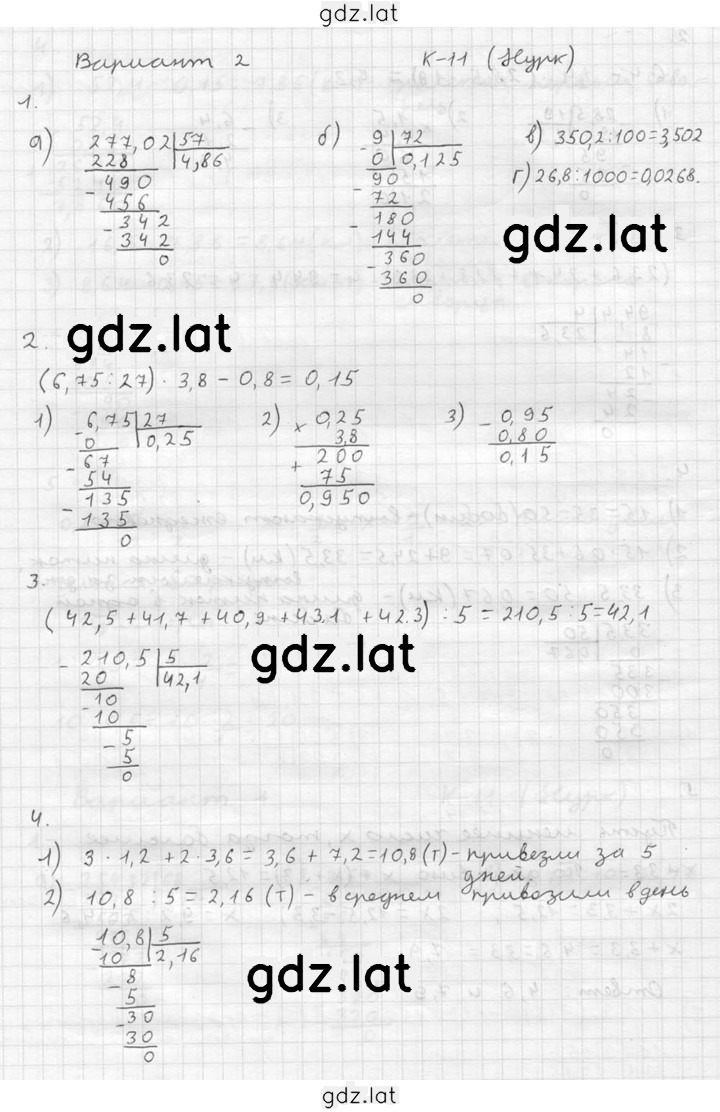 gdz.lat
Вариант 2 К-11 (Нурк)
1.
а) 277,02 | 57
228 | 4,86
- 490
456
- 342
342
0
б) - 9 | 72
0 | 0,125
- 90
72
- 180
144
- 360
360
0
в) 350,2:100=3,502
г) 26,8:1000=0,0268.
gdz.lat
gdz.lat
2.
(6,75:27) · 3,8 - 0,8 = 0,15
1) - 6,75 | 27
0 | 0,25
- 67
54
- 135
135
0
2) × 0,25
3,8
+ 200
75
0,950
3) - 0,95
0,80
0,15
3.
(42,5 + 41,7 + 40,9 + 43.1 + 42.3) : 5 = 210,5 : 5 = 42,1
- 210,5 | 5
20 | 42,1
- 10
10
- 5
5
0
gdz.lat
4.
1) 3 · 1,2 + 2 · 3,6 = 3,6 + 7,2 = 10,8 (т) - привезли за 5
дней
2) 10,8 : 5 = 2,16 (т) - в среднем привозили в день
- 10,8 | 5
10 | 2,16
- 8
5
- 30
30
0
gdz.lat
gdz.lat